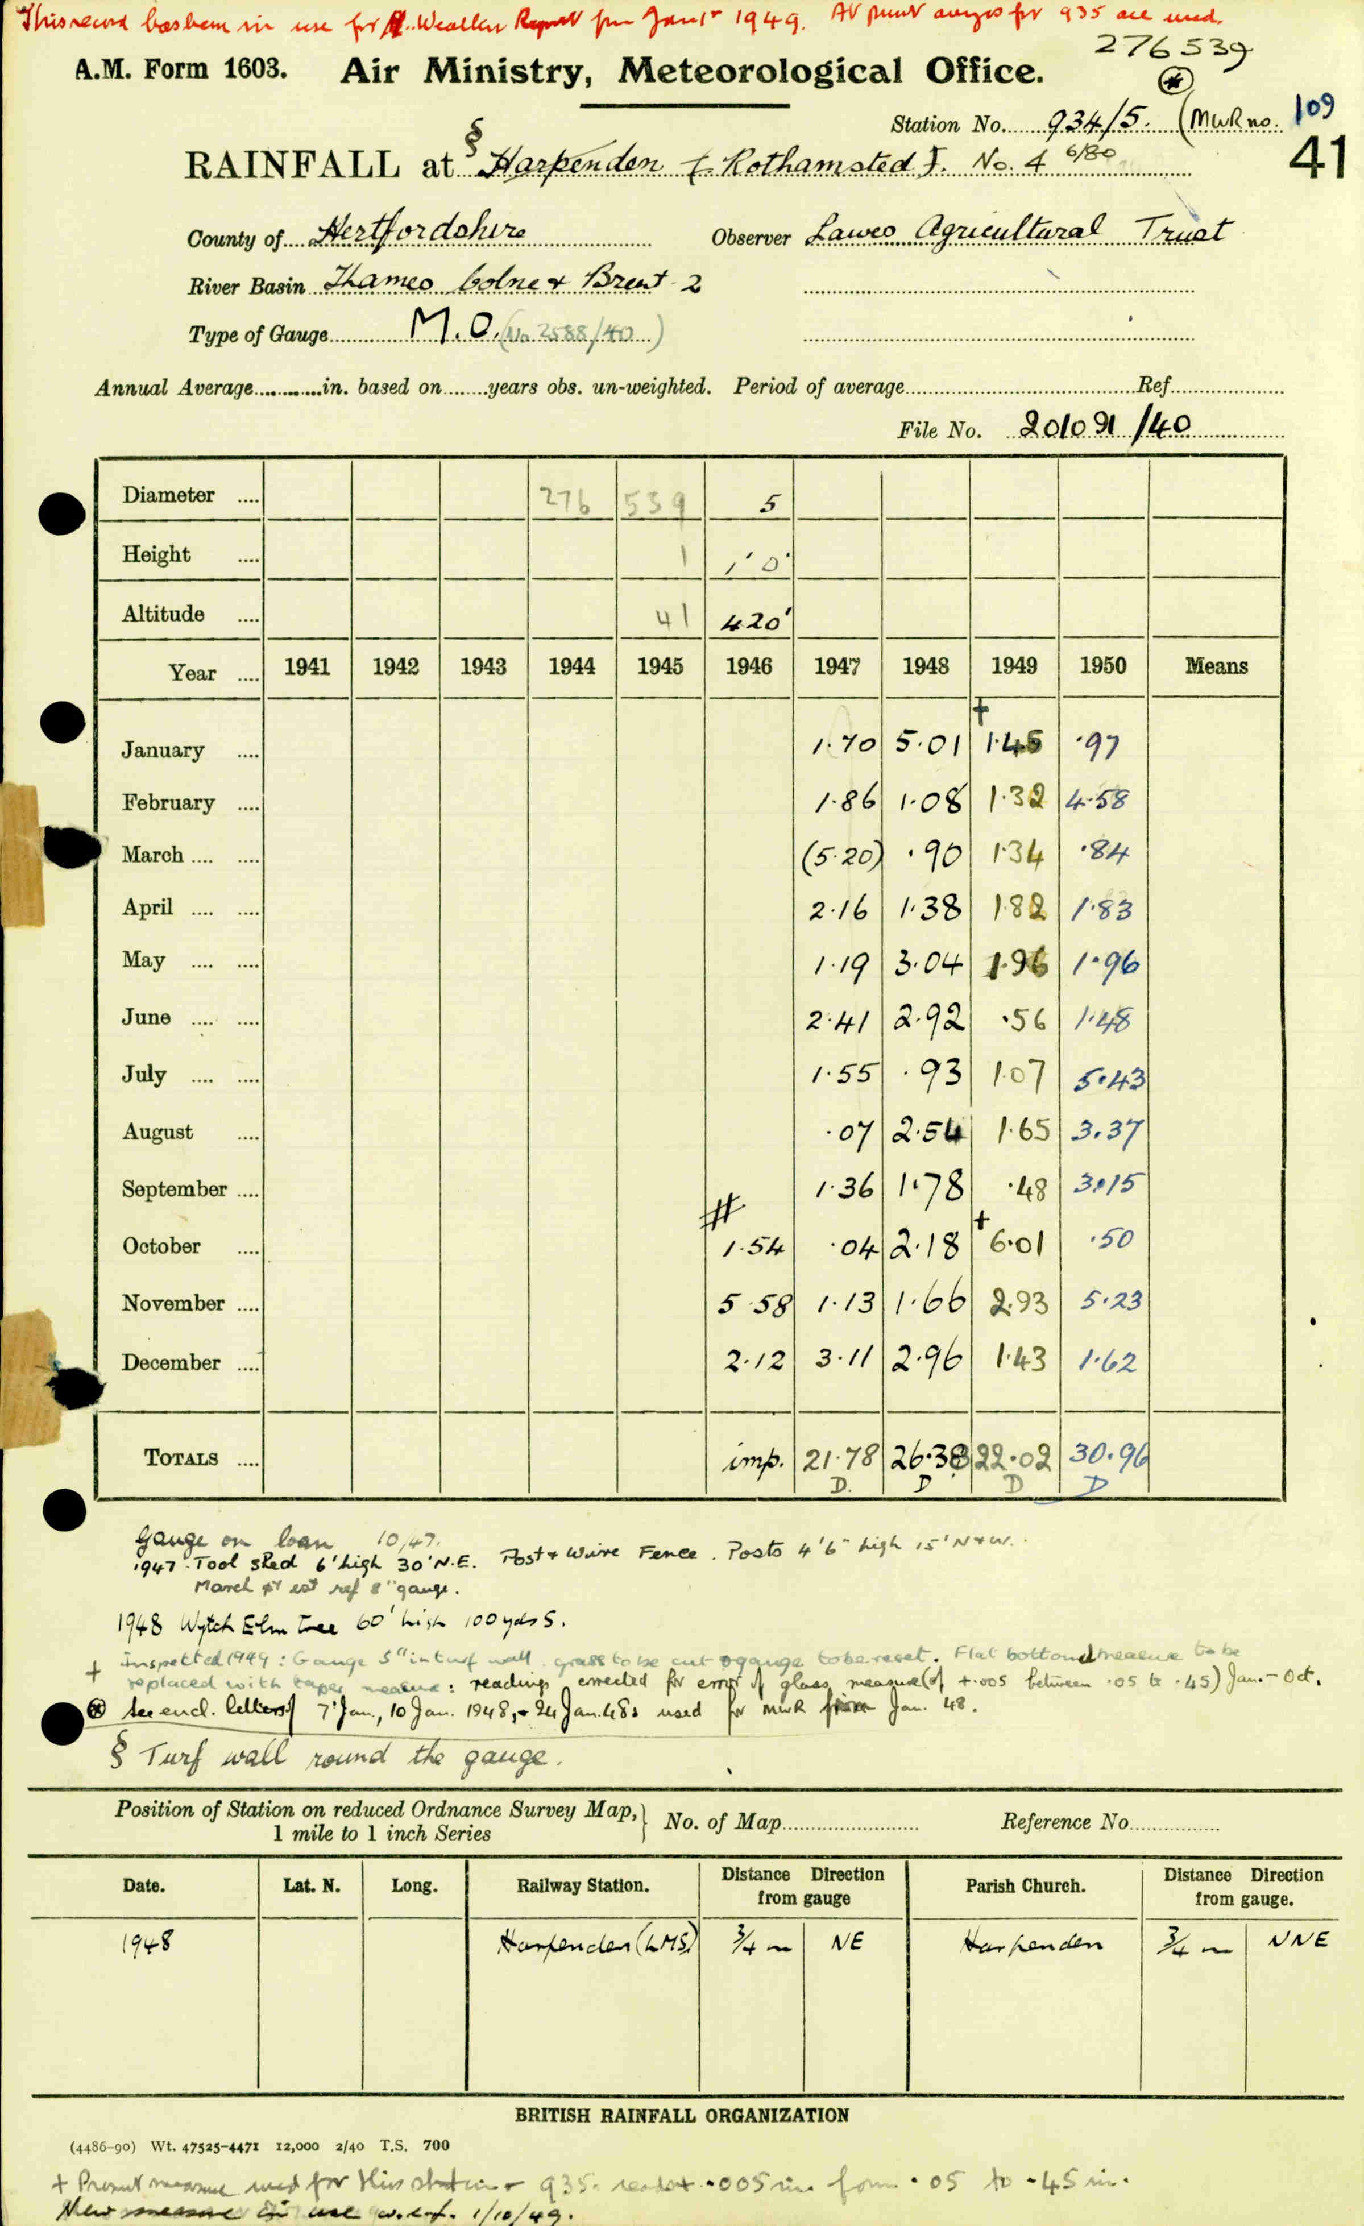 This record has been in use for M. Weather Report from Jan 1st 1949. At present averages for 935 are used.
276539
A.M. Form 1603. Air Ministry, Meteorological Office.
Station No. 934/5. (MWR no. 109
41
RAINFALL at § Harpenden (Rothamsted). No. 4 6/80
County of Hertfordshire Observer Lawes Agricultural Trust
River Basin Thames Colne & Brent 2
Type of Gauge M.O. (No 2588/40)
Annual Average in. based on years obs. un-weighted. Period of average Ref.
File No. 201091/40
Diameter .... 276 539 5
Height .... 1 1' 0"
Altitude .... 41 420'
Year .... 1941 1942 1943 1944 1945 1946 1947 1948 1949 1950 Means
January .... 1.70 5.01 † 1.45 .97
February .... 1.86 1.08 1.32 4.58
March .... .... (5.20) .90 1.34 .84
April .... .... 2.16 1.38 1.82 1.83
May .... .... 1.19 3.04 1.96 1.96
June .... .... 2.41 2.92 .56 1.48
July .... .... 1.55 .93 1.07 5.43
August .... .07 2.54 1.65 3.37
September .... 1.36 1.78 .48 3.15
October .... # 1.54 .04 2.18 † 6.01 .50
November .... 5.58 1.13 1.66 2.93 5.23
December .... 2.12 3.11 2.96 1.43 1.62
TOTALS .... imp. 21.78 26.38 22.02 30.96
D. D D D
Gauge on loan 10/47.
1947 Tool Shed 6' high 30' N.E. Post & Wire Fence. Posts 4'6" high 15' N & W.
March est ref 8" gauge.
1948 Wytch Elm Tree 60' high 100 yds S.
† Inspected 1949: Gauge 5" in turf wall. grass to be cut & gauge to be reset. Flat bottomed measure to be
replaced with taper measure: readings corrected for error of glass measure (of +.005 between .05 to .45) Jan.-Oct.
See encl. letters 7 Jan., 10 Jan. 1948, & 24 Jan. 48: used for MWR from Jan. 48.
§ Turf wall round the gauge.
Position of Station on reduced Ordnance Survey Map, } No. of Map Reference No
1 mile to 1 inch Series
Date. Lat. N. Long. Railway Station. Distance Direction from gauge Parish Church. Distance Direction from gauge.
1948 Harpenden (LMS) 3/4 m NE Harpenden 3/4 m NNE
BRITISH RAINFALL ORGANIZATION
(4486-90) Wt. 47525-4471 12,000 2/40 T.S. 700
+ Present measure used for this station & 935. reads + .005 in from .05 to .45 in.
New measure in use w.e.f. 1/10/49.